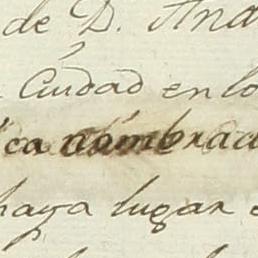 de D. And
Ciudad en lo
ca nombrad
haya lugar